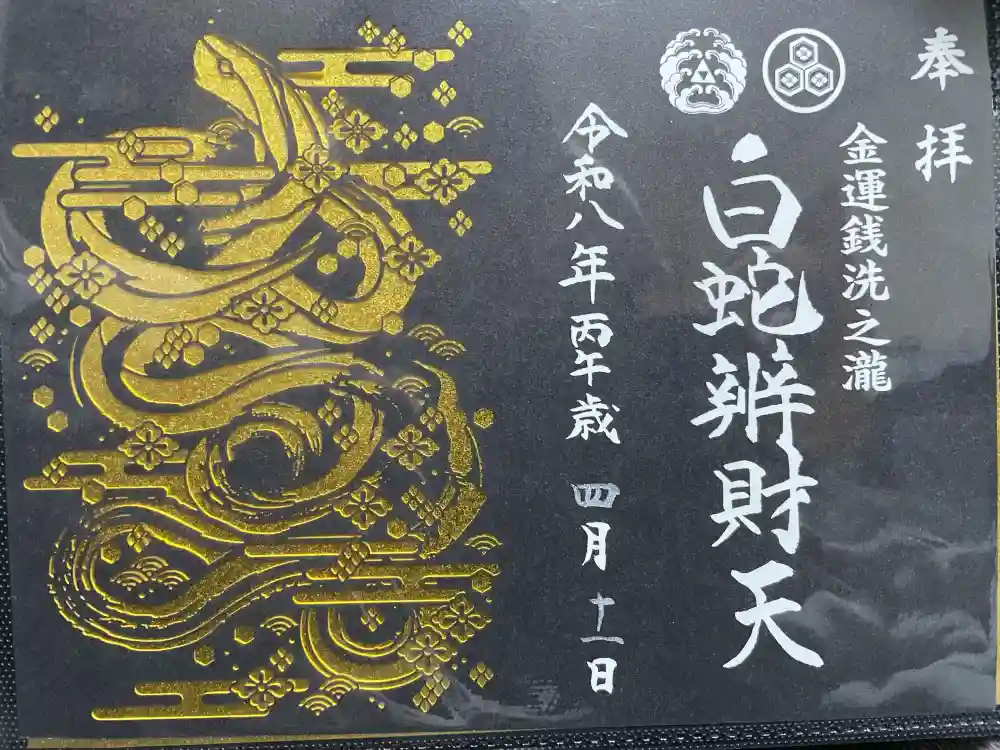 奉拝
金運銭洗之瀧
白蛇辨財天
令和八年丙午歳 四月 十一日